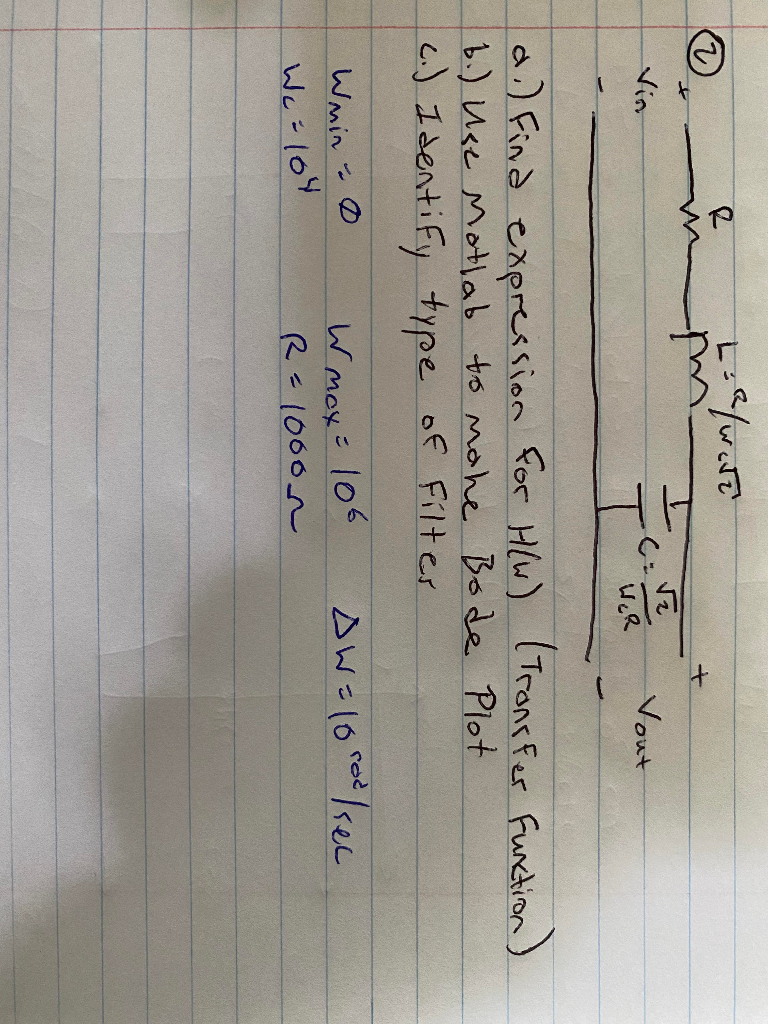 2
R L = R/wc√2
+ +
Vin C = √2/WcR Vout
- -
a.) Find expression for H(w) (Transfer Function)
b.) Use Matlab to make Bode Plot
c.) Identify type of Filter
Wmin = 0 Wmax = 10⁶ ΔW = 10 rad/sec
Wc = 10⁴ R = 1000 Ω